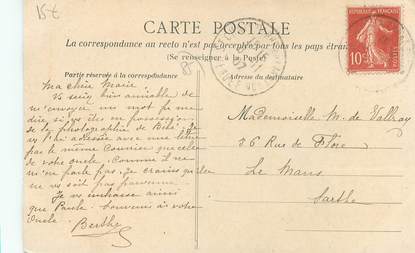 15€
CARTE POSTALE
La correspondance au recto n'est pas acceptée par tous les pays étran
(Se renseigner à la Poste)
Partie réservée à la correspondance
Adresse du destinataire
REPUBLIQUE FRANÇAISE
10c
POSTES
Ma chère Marie
Tu seras bien aimable de
m'envoyer un mot pour me
dire si tu es en possession
de la photographie de
je l'ai adressée avec une lettre
par le même courrier que celle
de votre oncle. Comme il ne
m'en parle pas, je crains qu'elle
ne vs soit pas parvenue.
Je vs embrasse ainsi
que Paule. Souvenir à votre
Oncle.
Berthe
Mademoiselle M. de Vallray
26 Rue de Flore
Le Mans
Sarthe